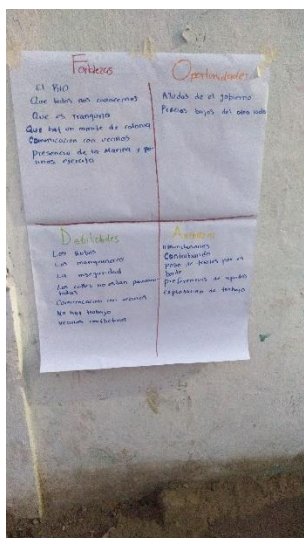 Fortalezas
El Río
Que todos nos conocemos
Que es tranquilo
Que hay un comité de colonia
Comunicación con vecinos
presencia de la Marina y por
unos ejercito
Oportunidades
Ayudas de el gobierno
Precios bajos del otro lado
Debilidades
Los Robos
La inseguridad
Las calles no estan pavimen
tadas
Comunicación con vecinos
No hay trabajo
vecinos conflictivos
Amenazas
Inundaciones
Contrabando
paso de
por el
preferencias de ayudas
explotación de trabajo